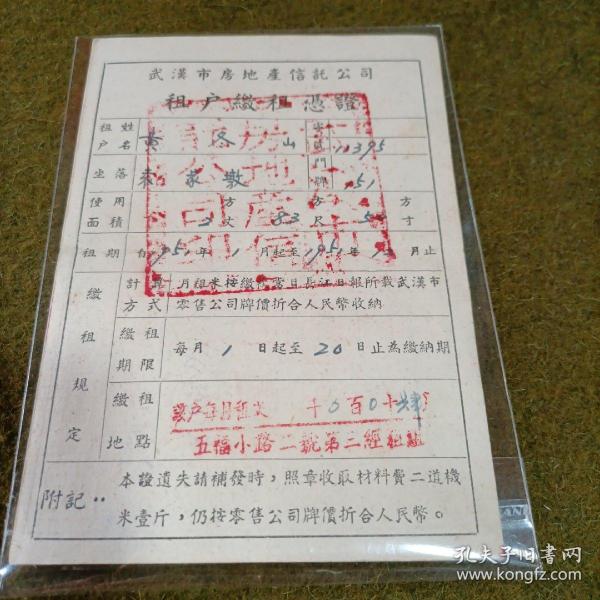 武漢市房地產信託公司
租户繳租憑證
租户姓名 黄冬山 11395
坐落 袁家墩 門牌 51
使用面積 2方丈83方尺5方寸
租期 自1951年1月起至1951年12月止
繳租規定
計算方式 月租米按繳付當日長江日報所載武漢市
零售公司牌價折合人民幣收納
繳租期限 每月1日起至20日止為繳納期
繳租地點 該户每月租米 千0百0十肆
五福小路二號第二經租組
附記：本證遺失請補發時，照章收取材料費二道機
米壹斤，仍按零售公司牌價折合人民幣。
孔夫子旧书网
www.kongfz.com